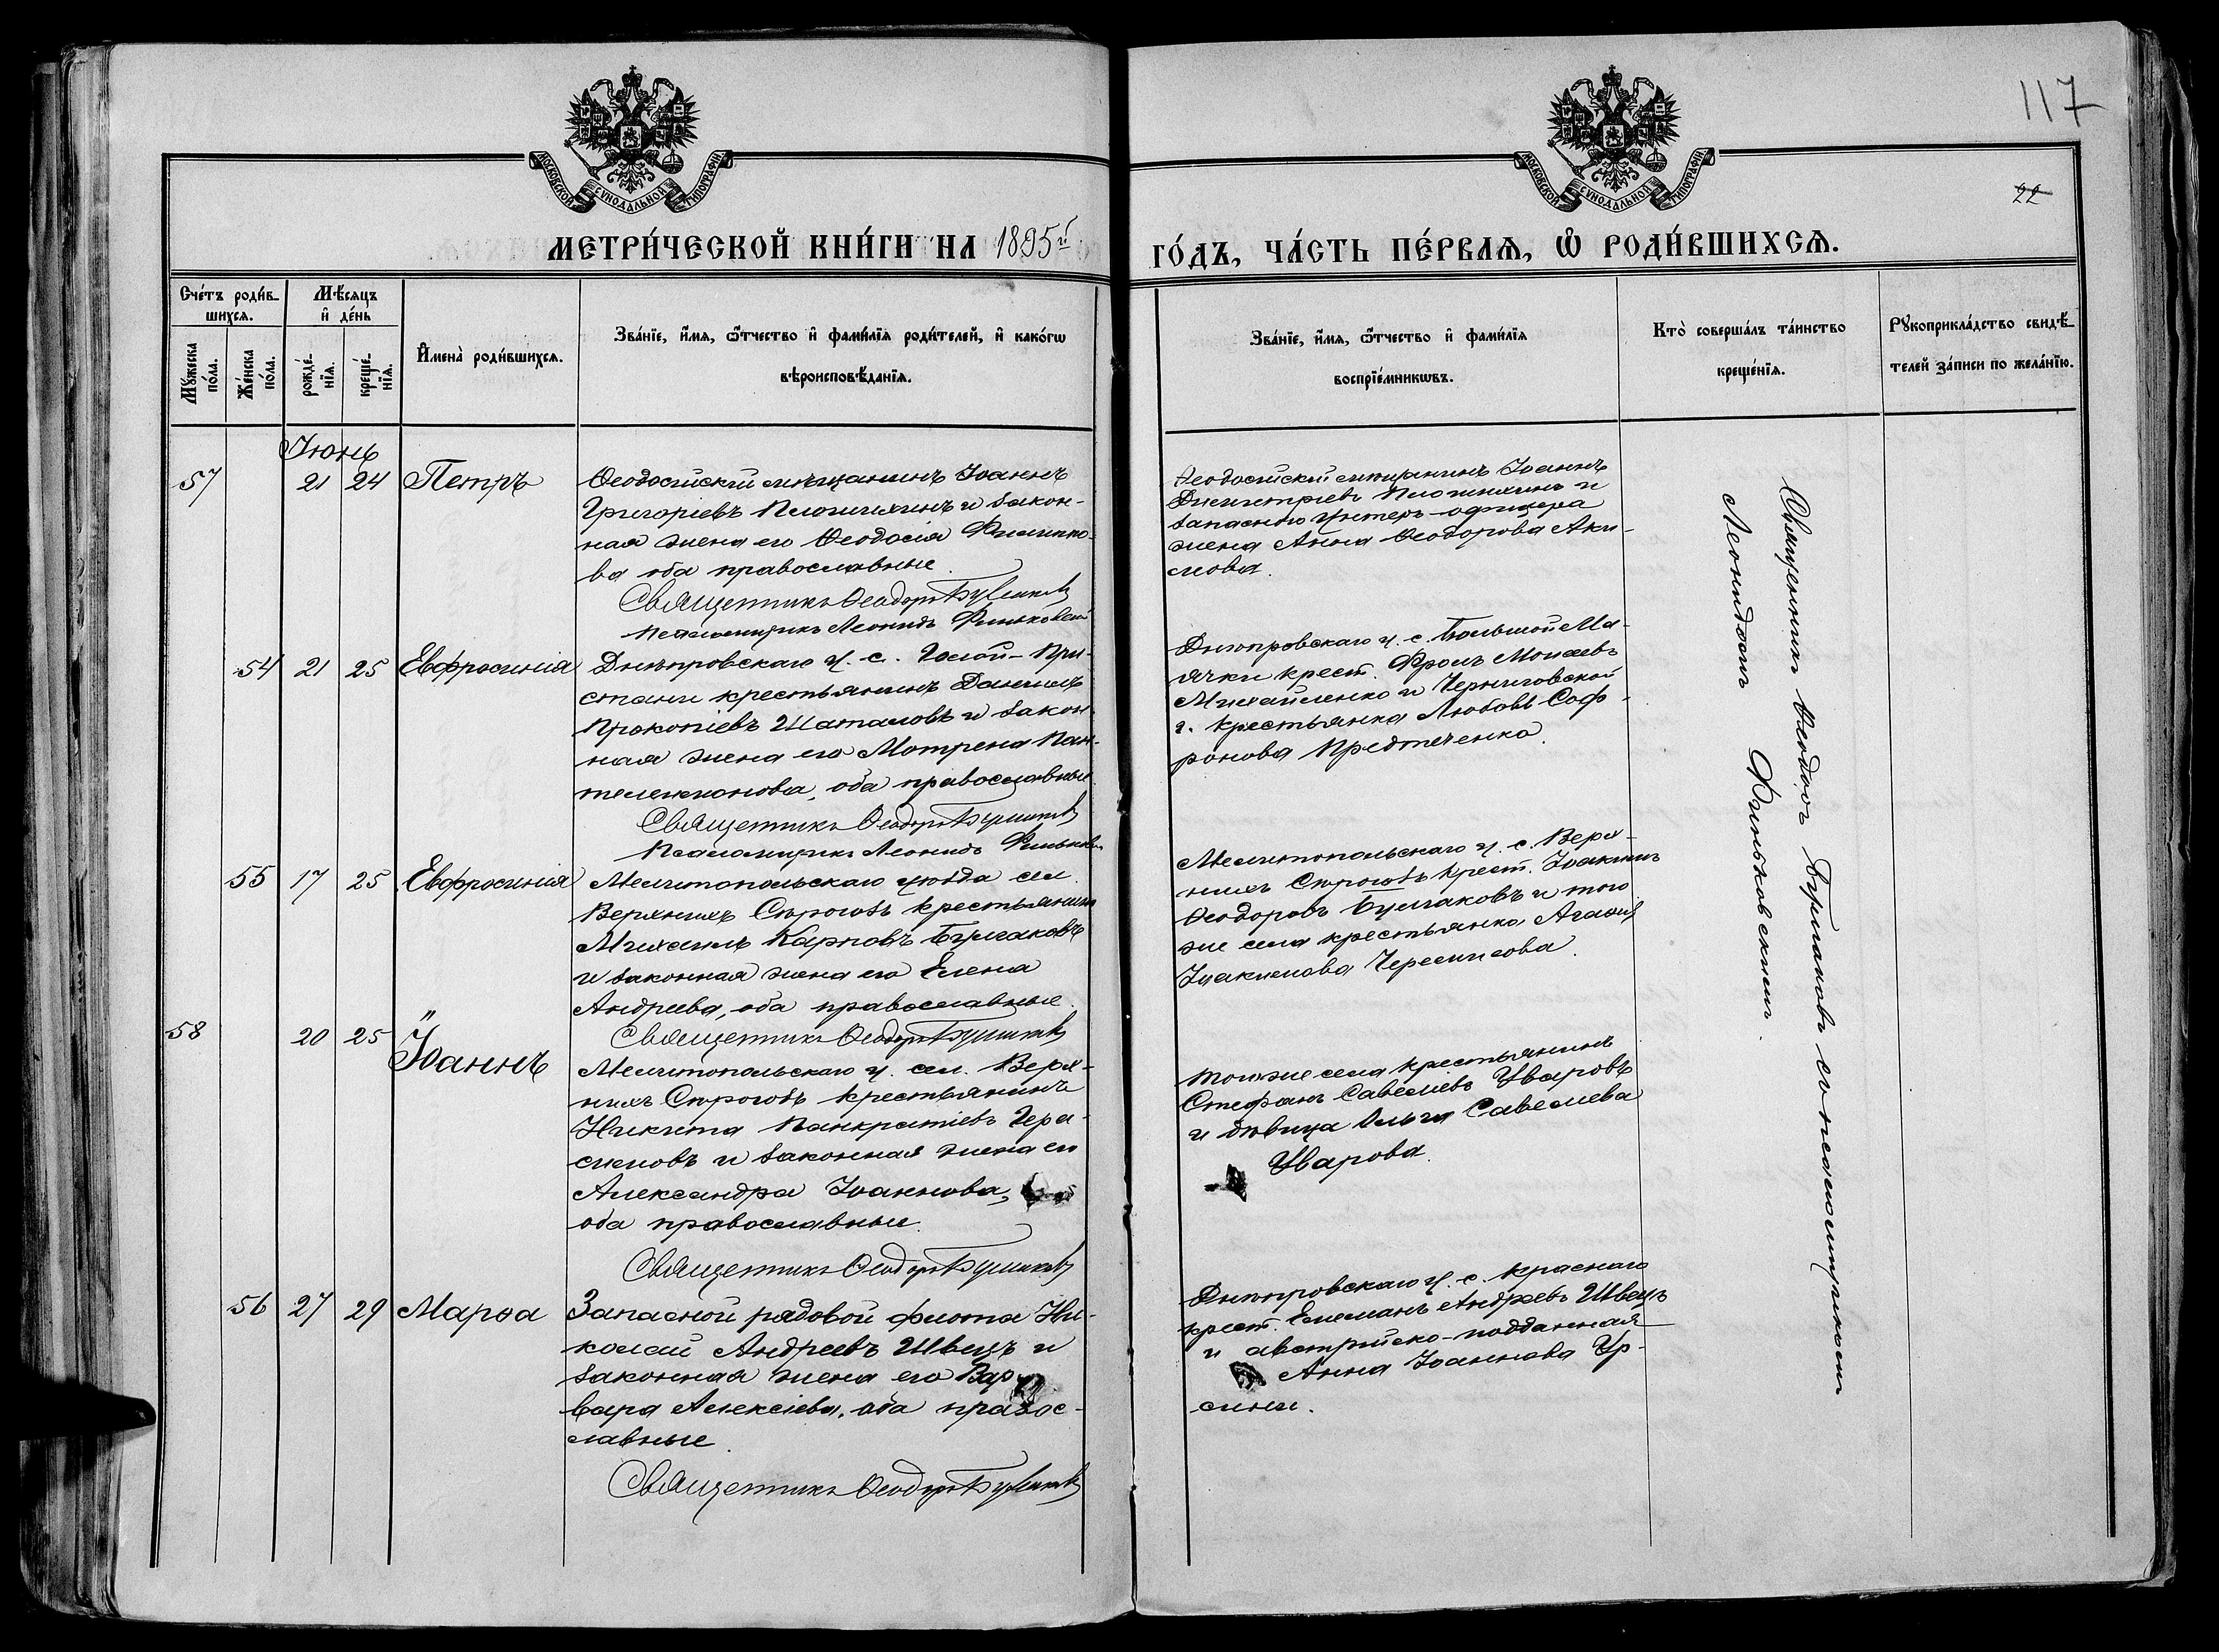 117
22
МОСКОВСКОЙ СѴНОДАЛЬНОЙ ТИПОГРАФІИ
МОСКОВСКОЙ СѴНОДАЛЬНОЙ ТИПОГРАФІИ
МЕТРИ́ЧЕСКОЙ КНИ́ГИ НА 1895й
ГО́ДЪ, ЧА́СТЬ ПЕ́РВАѦ, Ѽ РОДИ́ВШИХСѦ.
Сче́тъ роди́в-
шихсѧ.
Мꙋ́жеска по́ла.
Же́нска по́ла.
Мѣ́сѧцъ
и҆ де́нь
рожде́-
нїѧ.
креще́-
нїѧ.
И҆мена̀ роди́вшихсѧ.
Зва́нїе, и҆́мѧ, ѻ҆́тчество и҆ фами́лїѧ роди́телей, и҆ како́гѡ
вѣроисповѣ́данїѧ.
Зва́нїе, и҆́мѧ, ѻ҆́тчество и҆ фами́лїѧ
воспрїе́мникѡвъ.
Кто̀ соверша́лъ та́инство
креще́нїѧ.
Рꙋкоприкла́дство свидѣ́-
телей за́писи по жела́нїю.
Іюнь
57
21 24 Петръ
Ѳеодосійскій мѣщанинъ Іоаннъ
Григоріевъ и закон-
ная жена его Ѳеодосія Филиппо-
ва оба православные.
Священникъ Ѳеодоръ Булгаковъ
Псаломщикъ Леонидъ Финьковскій
Ѳеодосійскій мѣщанинъ Іоаннъ
Димитріевъ и
запаснаго унтеръ-офицера
жена Анна Ѳеодорова Аки-
мова.
54 21 25 Евфросинія
Днѣпровскаго у. с. Голой-При-
стани крестьянинъ Даніилъ
Прокопіевъ Шаталовъ и закон-
ная жена его Мотрена Пан-
телеимонова, оба православные
Священникъ Ѳеодоръ Булгаковъ
Псаломщикъ Леонидъ Финьков
Днѣпровскаго у. с. Большой Ма-
ячки крест. Фролъ Моисеевъ
Михайленко и Черниговской
г. крестьянка Любовь Соф-
ронова Предтеченко.
55 17 25 Евфросинія
Мелитопольскаго уѣзда сел.
Верхнихъ Сѣрогозъ крестьянинъ
Михаилъ Карповъ Булгаковъ
и законная жена его Елена
Андреева, оба православные.
Священникъ Ѳеодоръ Булгаковъ
Мелитопольскаго у. с. Верх-
нихъ Сѣрогозъ крест. Іоакимъ
Ѳеодоровъ Булгаковъ и того
же села крестьянка Агаѳія
Іоакимова Черемисова.
58
20 25 Іоаннъ
Мелитопольскаго у. сел. Верх-
нихъ Сѣрогозъ крестьянинъ
Никита Панкратіевъ Гера-
симовъ и законная жена его
Александра Іоаннова,
оба православные.
Священникъ Ѳеодоръ Булгаковъ
того же села крестьянинъ
Стефанъ Савеліевъ Уваровъ
и дѣвица Ольга Савелиева
Уварова.
56 27 29 Марѳа
Запасной рядовой флота Ни-
колай Андреевъ Швецъ и
законная жена его Вар-
вара Алексіева, оба правос-
лавные.
Священникъ Ѳеодоръ Булгаковъ
Днѣпровскаго у. с. Краснаго
крест. Андреевъ Швецъ
и австрійско-подданная
Анна Іоаннова Ур-
сини.
Священникъ Ѳеодоръ Булгаковъ съ псаломщикомъ
Леонидомъ Финьковскимъ.